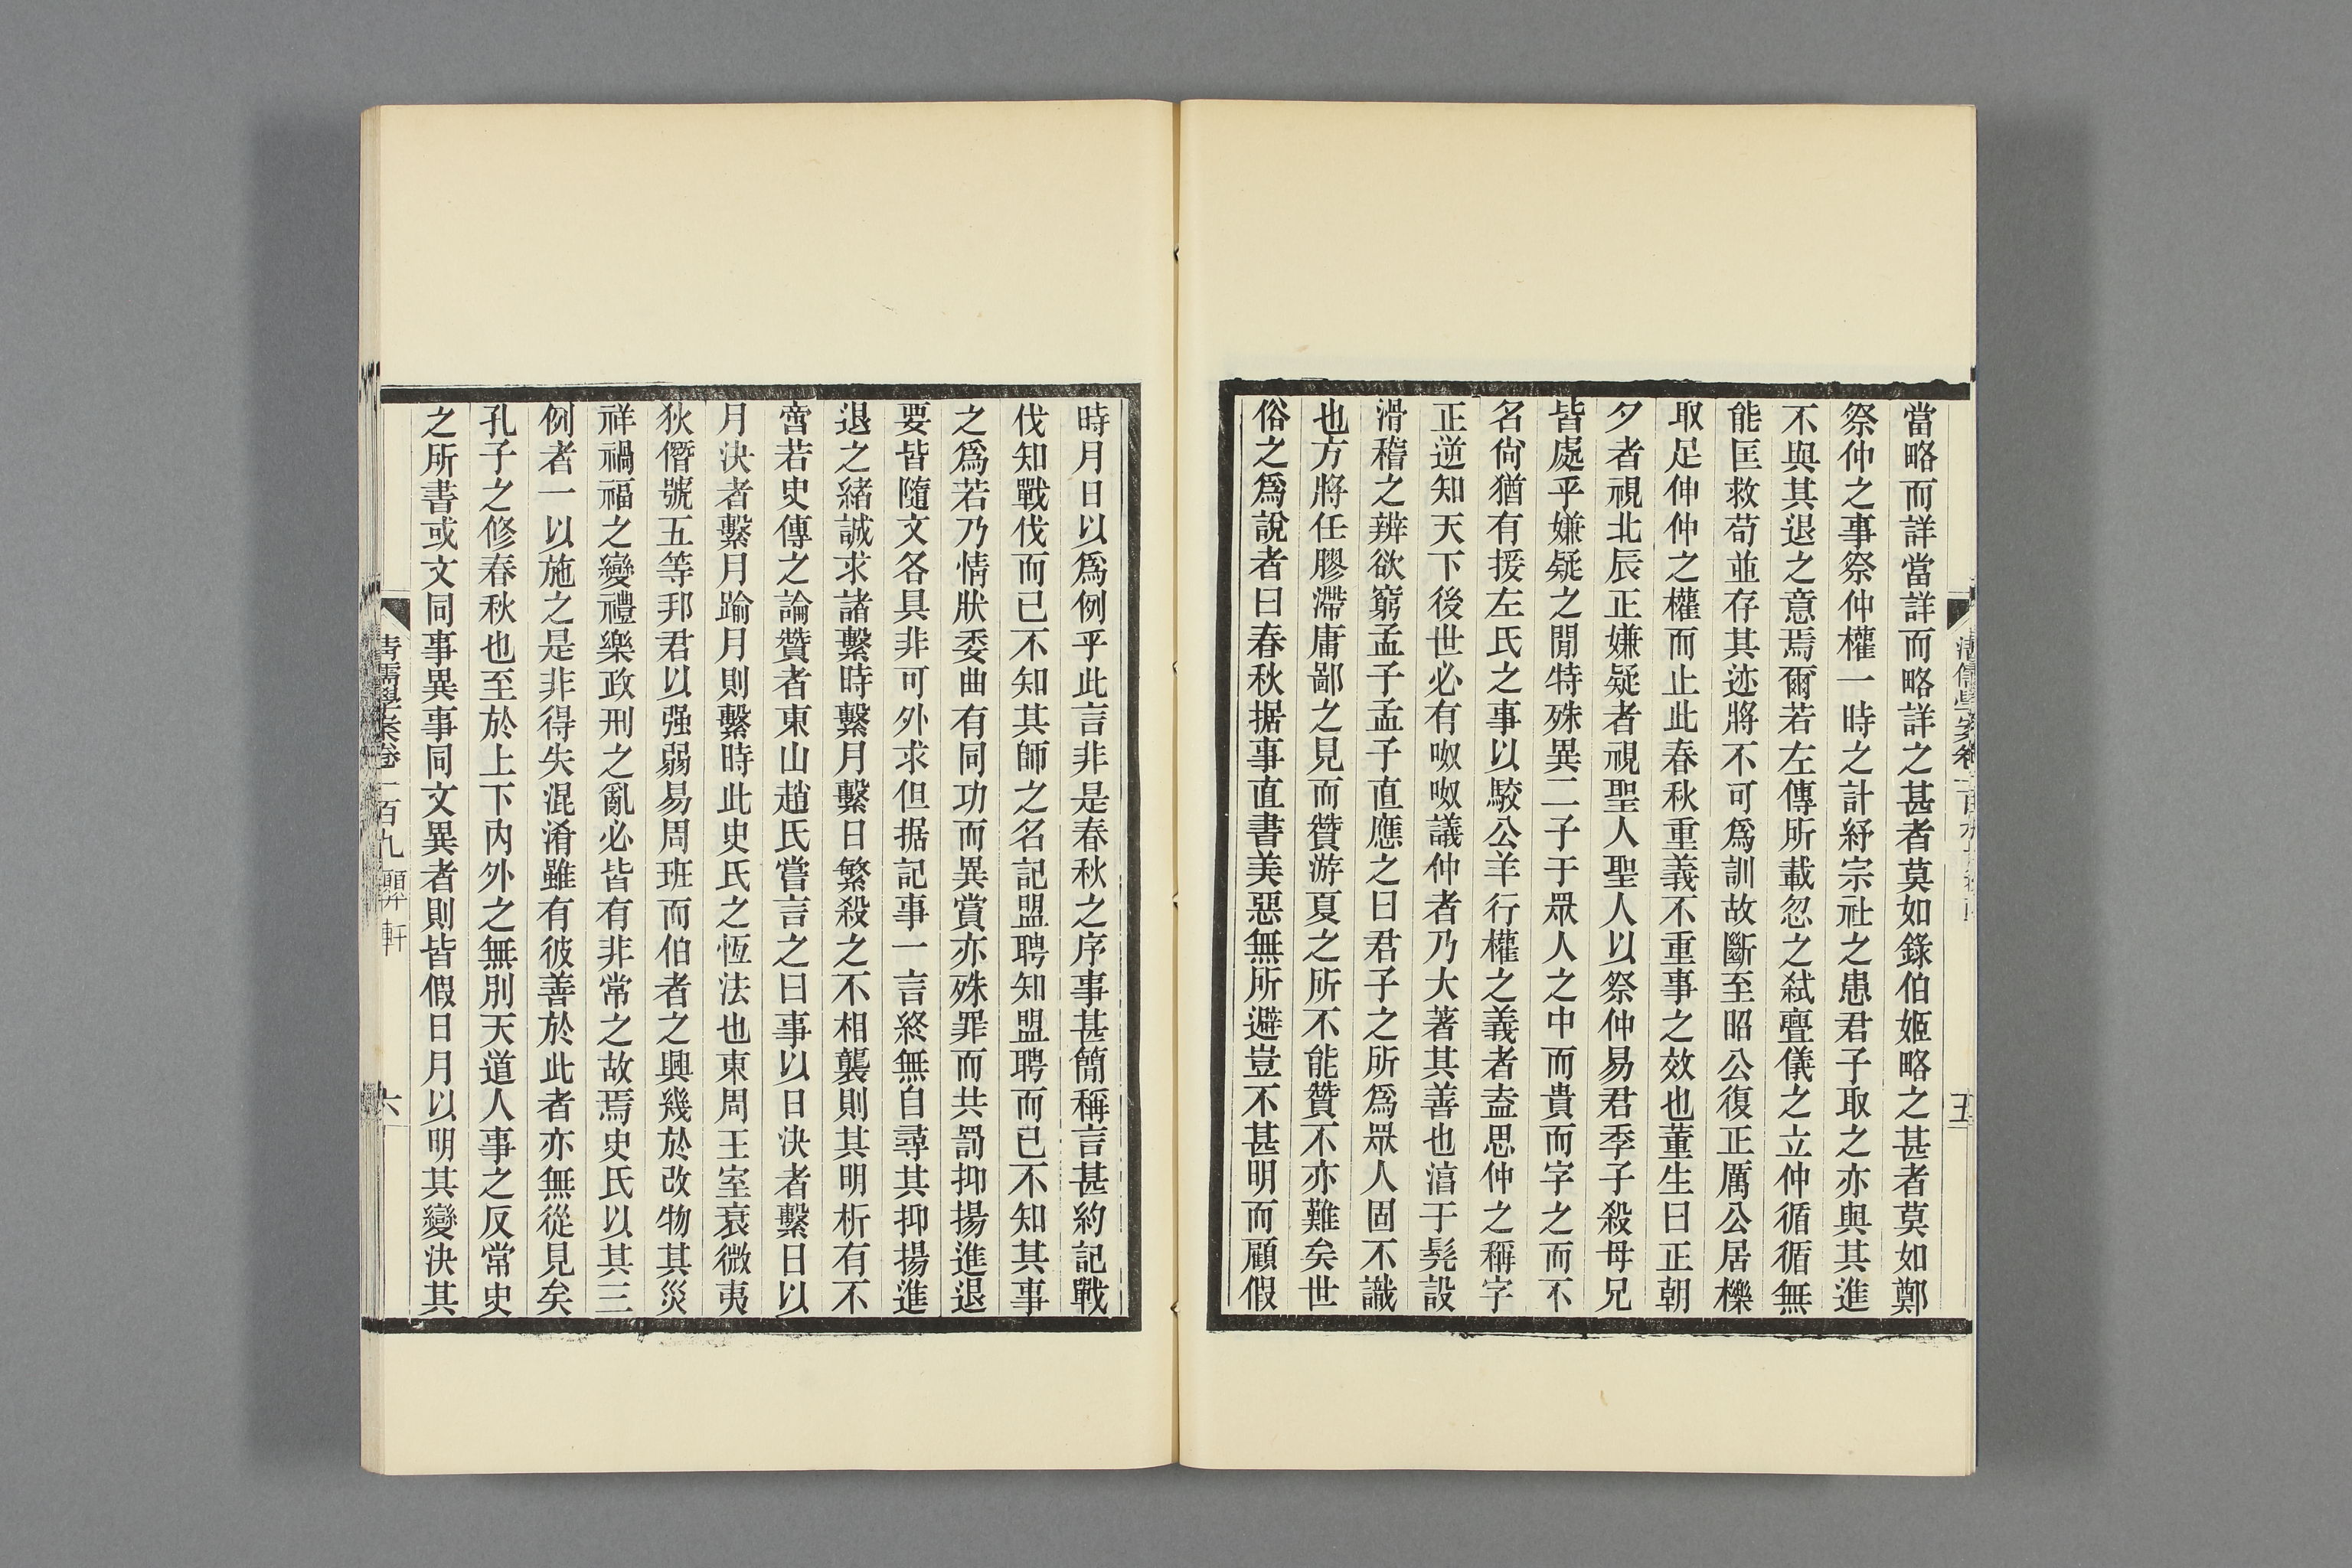 當略而詳當詳而略詳之甚者莫如錄伯姬略之甚者莫如鄭
祭仲之事祭仲權一時之計紓宗社之患君子取之亦與其進
不與其退之意焉爾若左傳所載忍之弑亹儀之立仲循循無
能匡救苟並存其迹將不可爲訓故斷至昭公復正厲公居櫟
取足伸仲之權而止此春秋重義不重事之效也董生曰正朝
夕者視北辰正嫌疑者視聖人聖人以祭仲易君季子殺母兄
皆處乎嫌疑之閒特殊異二子于眾人之中而貴而字之而不
名尙猶有援左氏之事以駮公羊行權之義者盍思仲之稱字
正逆知天下後世必有呶呶議仲者乃大著其善也湻于髡設
滑稽之辨欲窮孟子孟子直應之曰君子之所爲眾人固不識
也方將任膠滯庸鄙之見而贊游夏之所不能贊不亦難矣世
俗之爲說者曰春秋据事直書美惡無所避豈不甚明而顧假
五
時月日以爲例乎此言非是春秋之序事甚簡稱言甚約記戰
伐知戰伐而已不知其師之名記盟聘知盟聘而已不知其事
之爲若乃情狀委曲有同功而異賞亦殊罪而共罰抑揚進退
要皆隨文各具非可外求但据記事一言終無自尋其抑揚進
退之緒誠求諸繫時繫月繫日繁殺之不相襲則其明析有不
啻若史傳之論贊者東山趙氏嘗言之曰事以日決者繫日以
月決者繫月踰月則繫時此史氏之恆法也東周王室衰微夷
狄僭號五等邦君以强弱易周班而伯者之興幾於改物其災
祥禍福之變禮樂政刑之亂必皆有非常之故焉史氏以其三
例者一以施之是非得失混淆雖有彼善於此者亦無從見矣
孔子之修春秋也至於上下內外之無別天道人事之反常史
之所書或文同事異事同文異者則皆假日月以明其變決其
清儒學案卷一百九 顨軒
六